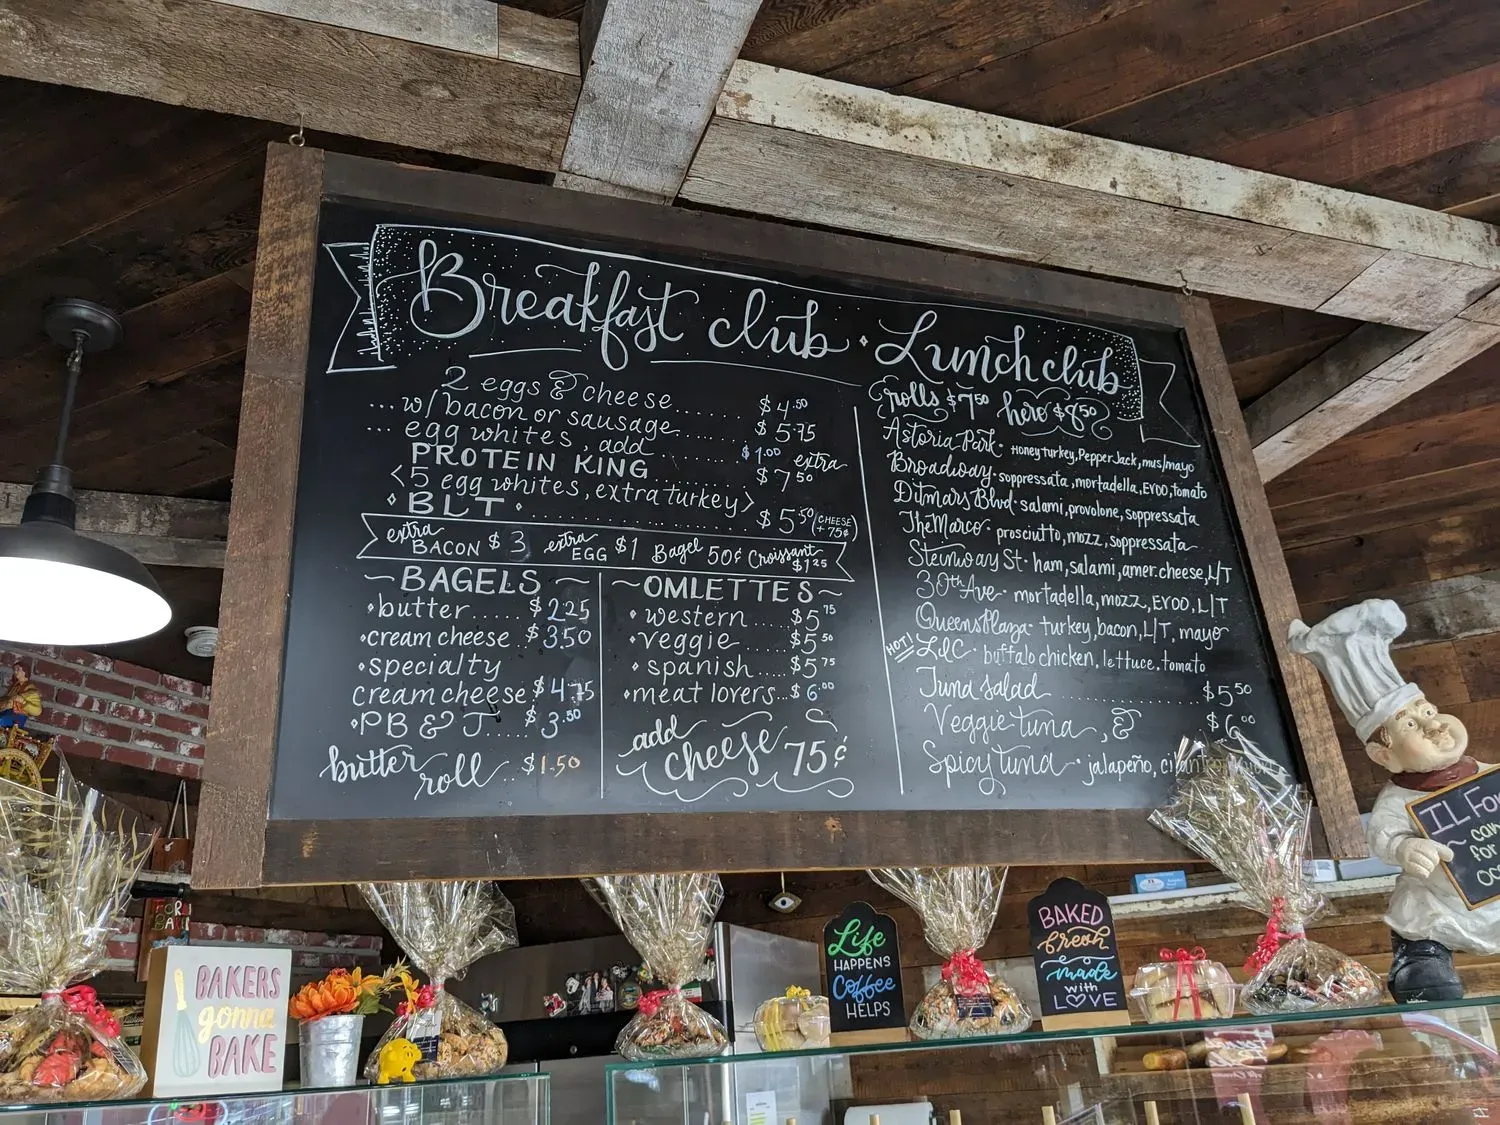 Breakfast club · Lunch club
2 eggs & cheese....... $4.50
... w/ bacon or sausage....... $5.75
... egg whites, add....... $1.00 extra
PROTEIN KING ....... $7.50
<5 egg whites, extra turkey>
BLT ....... $5.50 (CHEESE + 75¢)
extra BACON $3 extra EGG $1 Bagel 50¢ Croissant $1.25
~BAGELS~
•butter..... $2.25
•cream cheese. $3.50
•specialty
cream cheese $4.75
•PB & J.... $3.50
butter roll.. $1.50
~OMLETTES~
•western.... $5.75
•veggie..... $5.50
•spanish.... $5.75
•meat lovers.. $6.00
add cheese 75¢
rolls $7.50 hero $8.50
Astoria Park· Honey turkey, Pepper Jack, mus/mayo
Broadway· soppressata, mortadella, EVOO, tomato
Ditmars Blvd· salami, provolone, soppressata
The Marco· prosciutto, mozz, soppressata
Steinway St· ham, salami, amer. cheese, L/T
30th Ave· mortadella, mozz, EVOO, L/T
Queens Plaza· turkey, bacon, L/T, mayo
HOT! LIC· buffalo chicken, lettuce, tomato
Tuna salad ............ $5.50
Veggie tuna, & $6.00
Spicy tuna· jalapeño,
BAKERS
gonna
BAKE
Life
HAPPENS
Coffee
HELPS
BAKED
fresh
made
with
LOVE
IL
can
for